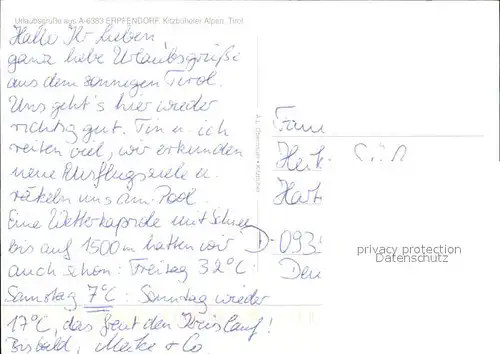 Urlaubsgrüße aus A-6383 ERPFENDORF, Kitzbüheler Alpen, Tirol
Hallo Ihr Lieben
ganz liebe Urlaubsgrüße
aus dem sonnigen Tirol.
Uns geht's hier wieder
richtig gut. Tin u. ich
reiten viel, wir erkunden
neue Ausflugsziele u.
räkeln uns am Pool.
Eine Wetterkapriole mit Schnee
bis auf 1500m hatten wir
auch schon: Freitag 32°C:
Samstag 7°C: Sonntag wieder
17°C, das freut den Kreislauf!
Bis bald, Meike + Co.
Fam
D-093
privacy protection
Datenschutz